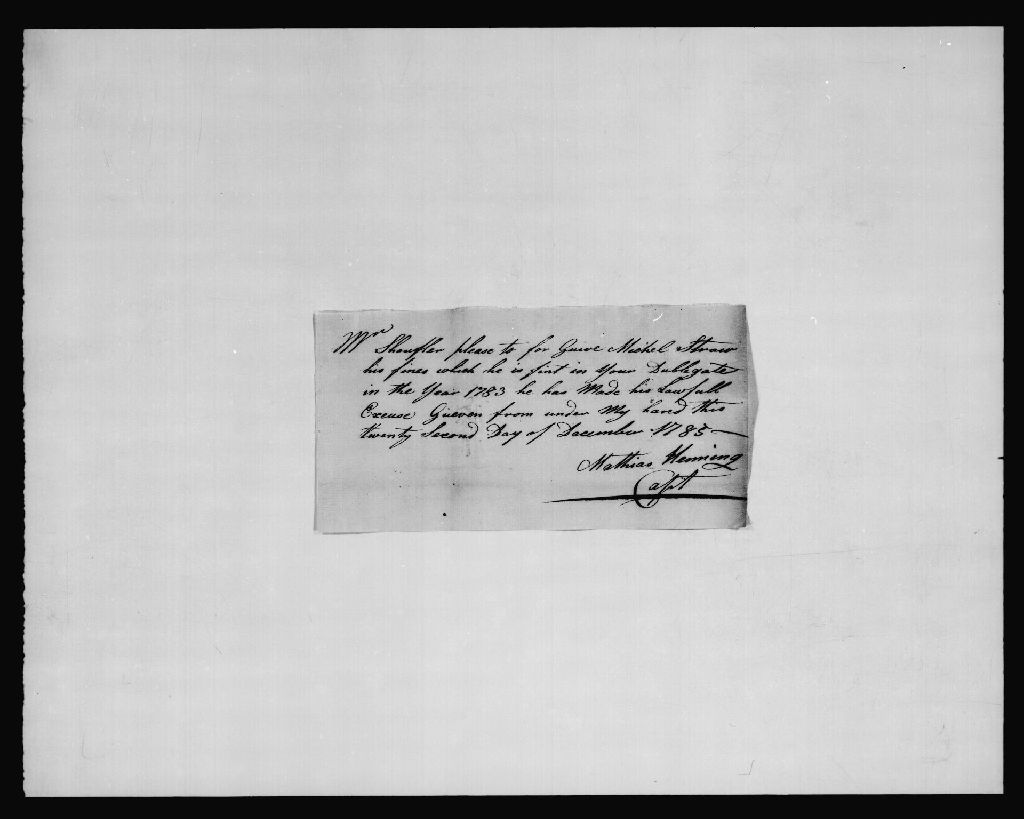 Mr Shoufler please to for Guive Michel Straw
his fines which he is fint in Your Dublegate
in the Year 1783 he has Made his Lawfull
Excuse Gueven from under My hand this
twenty Second Day of December 1785
Mathias Henning
Capt